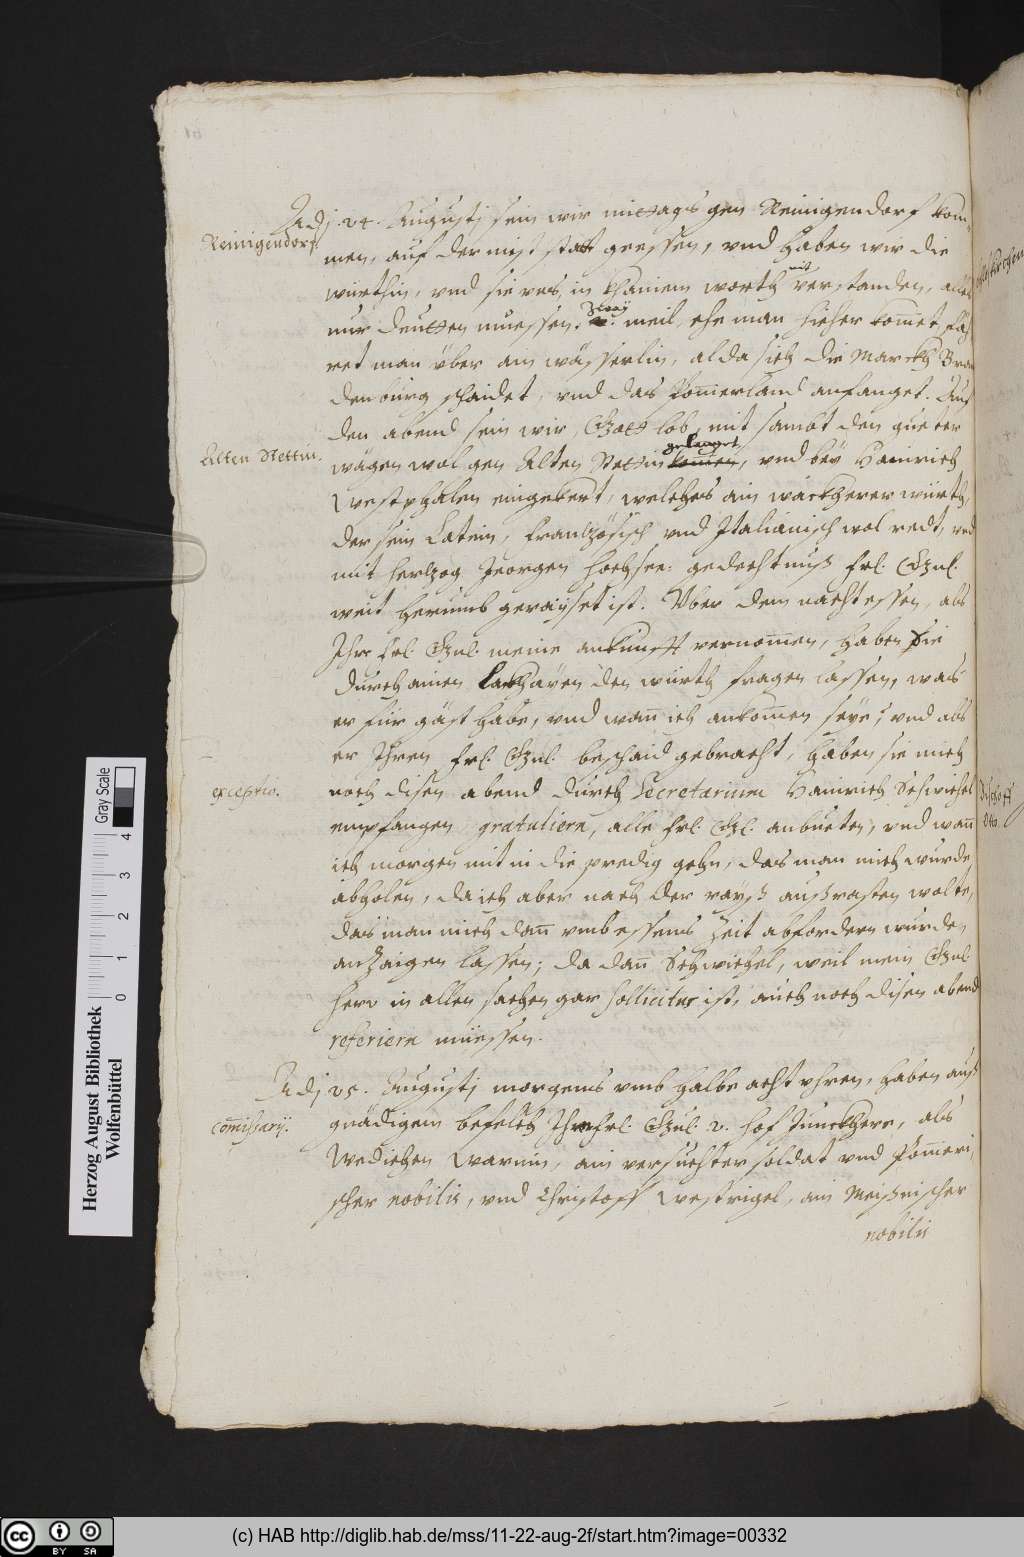 Adj. 24. Augustj sein wir mittags gen Reinigendorf kom-
Reinigendorf.
men, auf der mist statt geessen, vnd haben wir die
würthin, vnd sie vns, in khainem worth nit verstanden, alles
nur deutten muessen. Zway meil, ehe man hieher kom̅et, fäh
ret man über ain wässerlin, alda sich die Marckh Bran
denburg schaidet, vnd das Pom̅erland anfanget. Auf
den abend sein wir, Gott lob, mit sambt den gueter
Alten Stettin.
wägen wol gen Alten Stettin kom̅en gelanget, vnd bey Hainrich
Westphalen eingekert, welches ain wackherer würth,
der sein Latein, frantzösisch vnd Italianisch wol redt, vnd
mit hertzog Georgen hochsee: gedechtnuß frl. Gnl.
weit herumb gerayset ist. Vber dem nachtessen, als
Ihre frl. Gnl. meine ankunfft vernom̅en, haben Sie
durch ainen Lakhayen den würth fragen lassen, was
er für gäst habe, vnd wan̅ ich ankom̅en seye; vnd als
er Ihren frl. Gnl. beschaid gebracht, haben sie mich
exceptio.
noch disen abend durch Secretarium Hainrich Schwichel
empfangen, gratuliern, alle frl. Gl. anbueten, vnd wan̅
ich morgen mit in die predig gehn, das man mich wurde
abholen, da ich aber nach der rayß außrasten wolte,
das man mich dan̅ vmb essens zeit abfordern wurden
anzaigen lassen; da dan̅ Schwichel, weil mein Gnl.
herr in allen sachen gar sollicitus ist, auch noch disen abend
referiern müessen.
Adj 25. Augustj morgens vmb halbe acht vhren, haben auß
com̅issarij.
gnädigem befelch Ihrer frl. Gnl. 2. hof Junckhere, als
Wedichen Warnin, ain versuchter soldat vnd Pom̅eri,
scher nobilis, vnd Christoff Westrigel, ain Meißnischer
nobilis
Herzog August Bibliothek
Wolfenbüttel
Gray Scale
0 1 2 3 4
(c) HAB http://diglib.hab.de/mss/11-22-aug-2f/start.htm?image=00332
cc BY SA